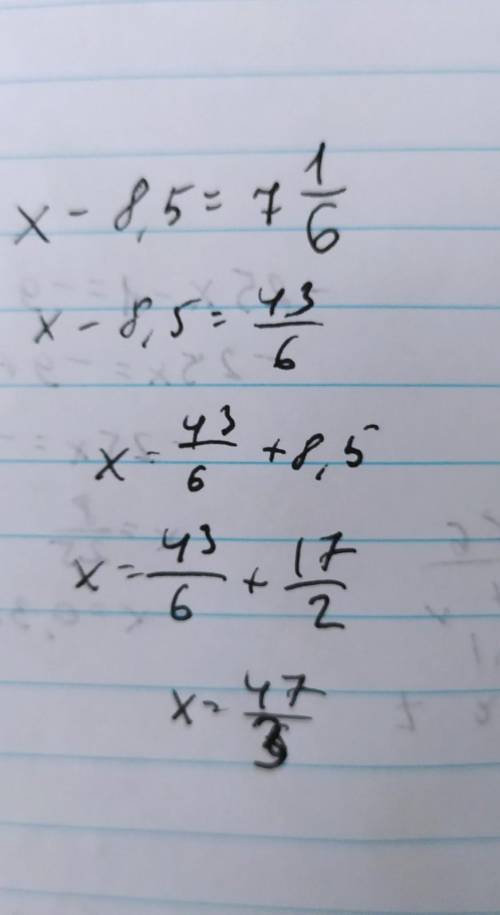 x - 8,5 = 7 1/6
x - 8,5 = 43/6
x = 43/6 + 8,5
x = 43/6 + 17/2
x = 47/3